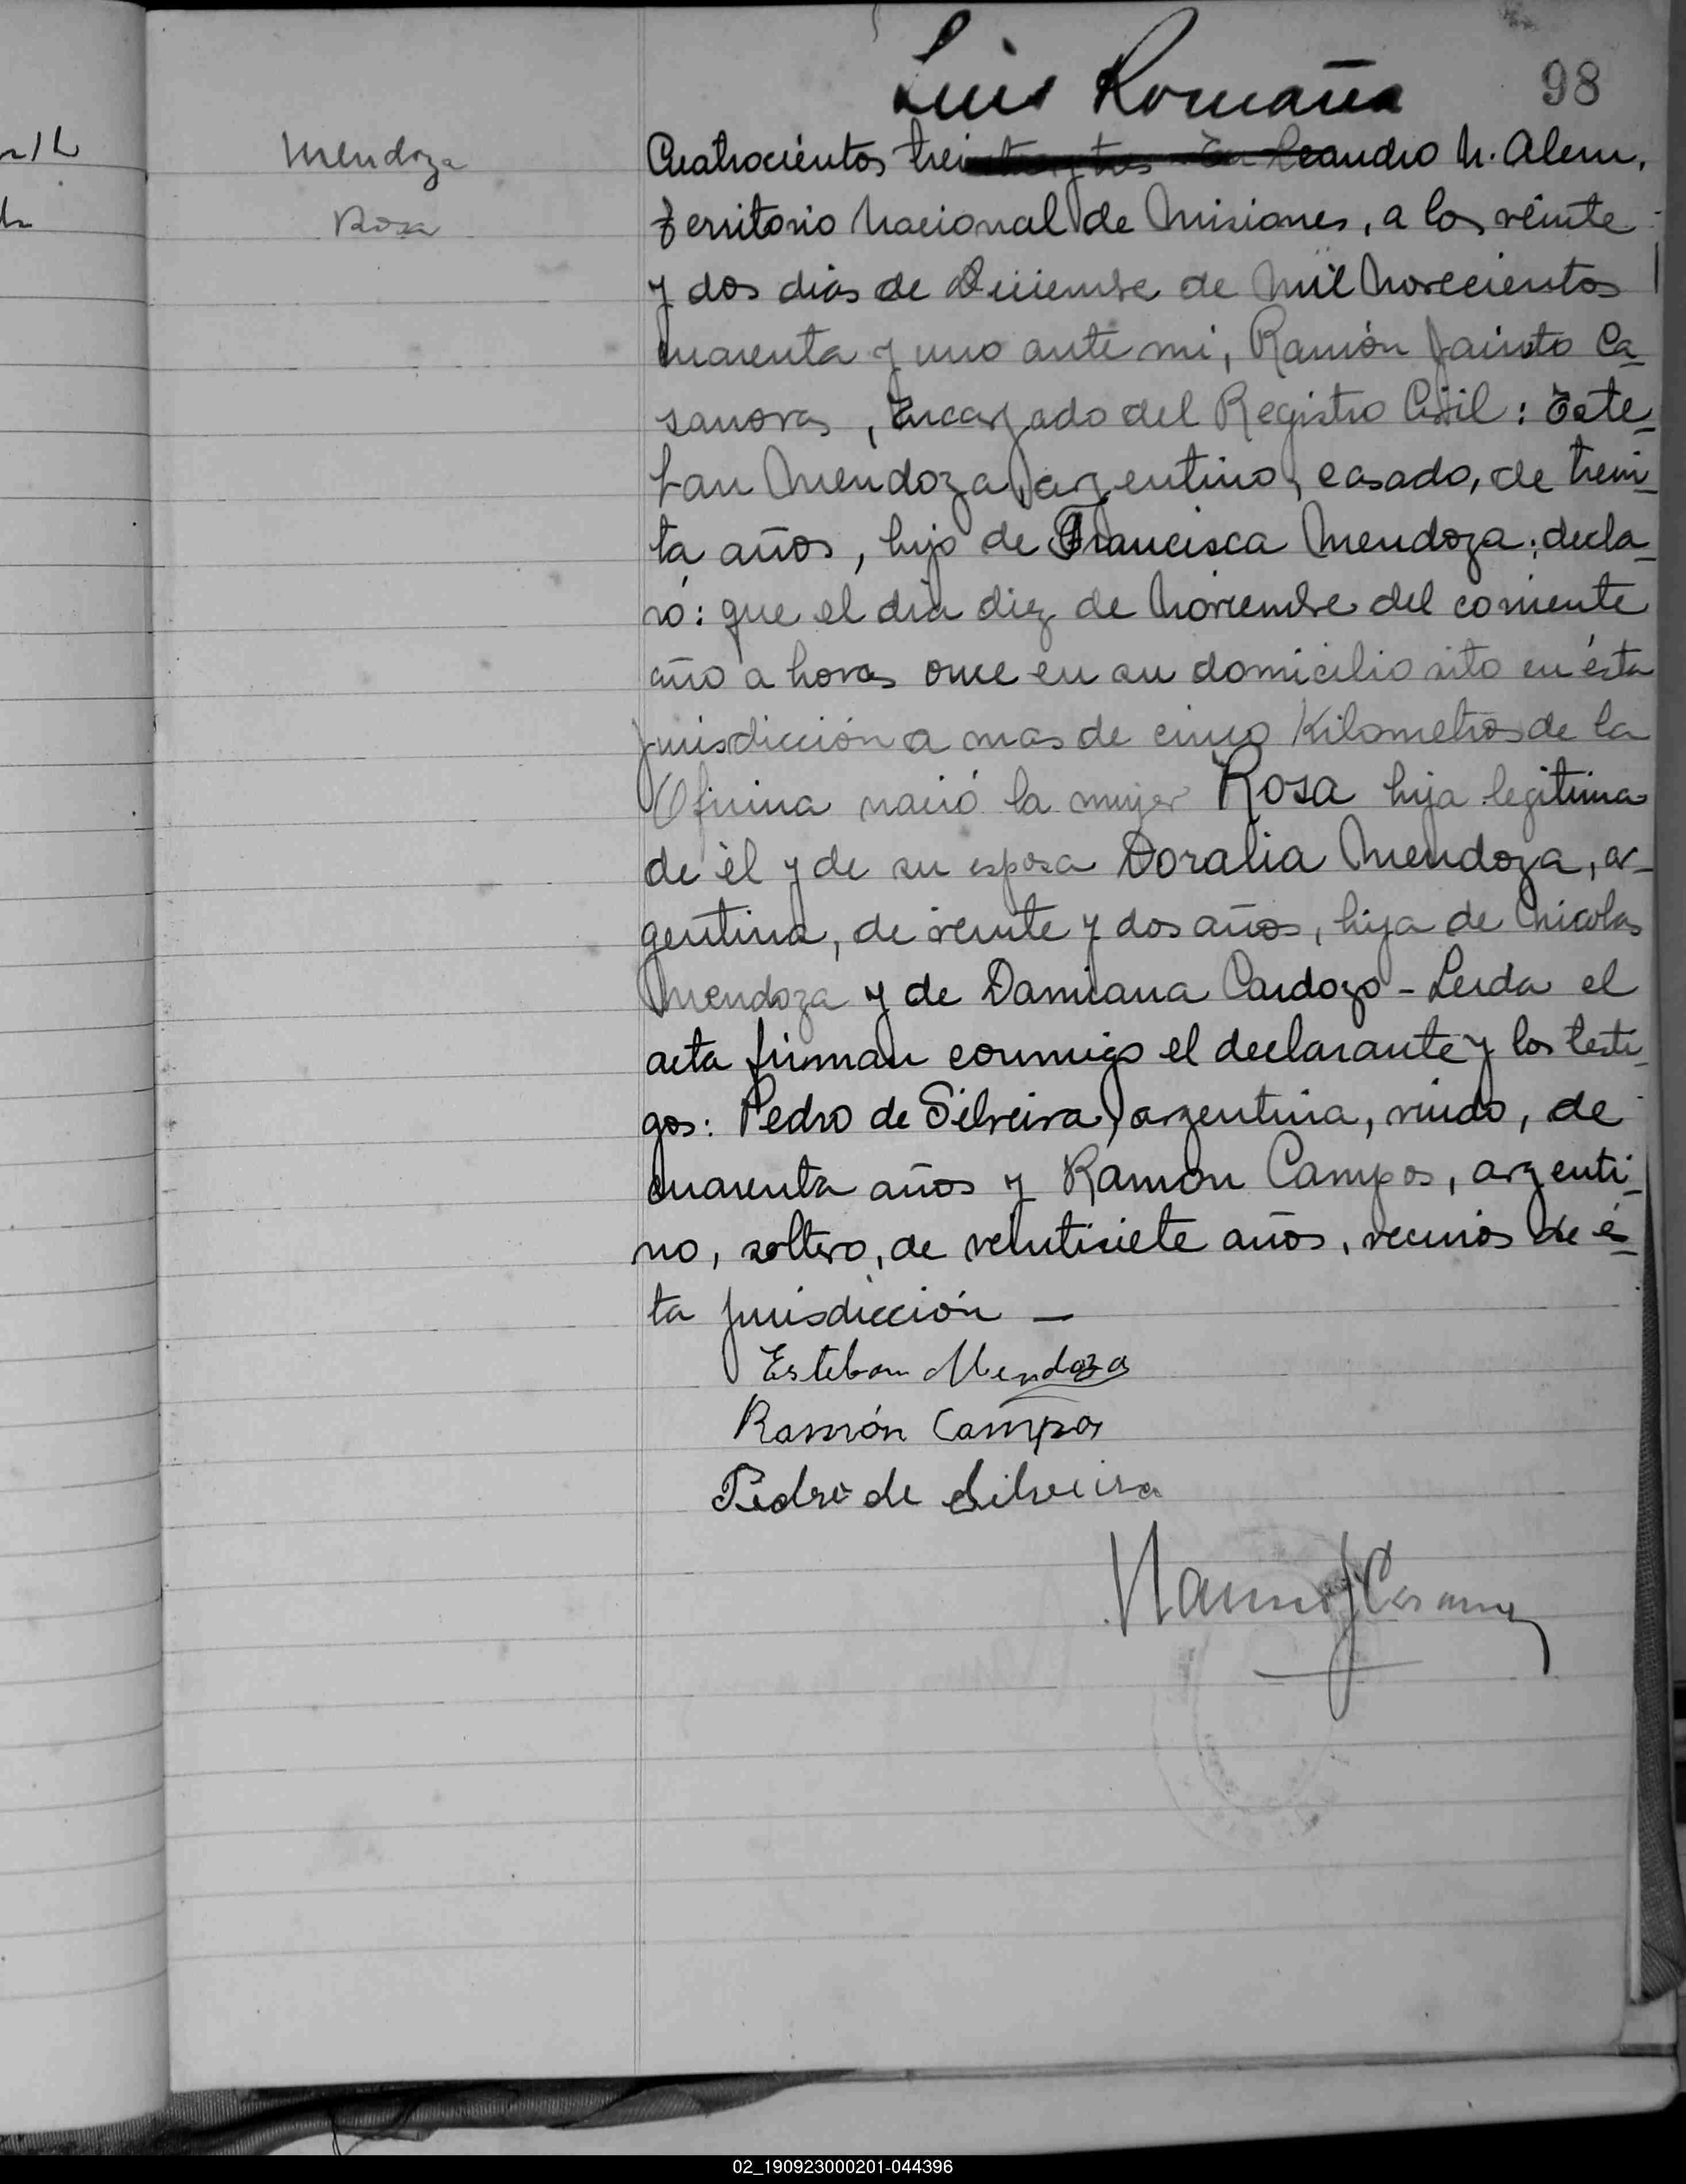 Luis Romaña
98
Mendoza
Rosa
Cuatrocientos treinta y tres En Leandro N. Alem,
territorio Nacional de Misiones, a los veinte
y dos dias de Diciembre de mil novecientos
cuarenta y uno ante mi, Ramón Jacinto Ca-
sanova, Encargado del Registro Civil: Este-
ban Mendoza, argentino, casado, de trein-
ta años, hijo de Francisca Mendoza; decla-
ró: que el dia diez de Noviembre del corriente
año a horas once en su domicilio sito en ésta
jurisdicción a mas de cinco Kilometros de la
Oficina nació la mujer Rosa hija legitima
de él y de su esposa Doralia Mendoza, ar-
gentina, de veinte y dos años, hija de Nicolas
Mendoza y de Damiana Cardozo - Leida el
acta firman conmigo el declarante y los testi-
gos: Pedro de Silveira, argentina, viudo, de
cuarenta años y Ramón Campos, argenti-
no, soltero, de veintisiete años, vecinos de és-
ta jurisdicción —
Esteban Mendoza
Ramón Campos
Pedro de Silveira
02_190923000201-044396